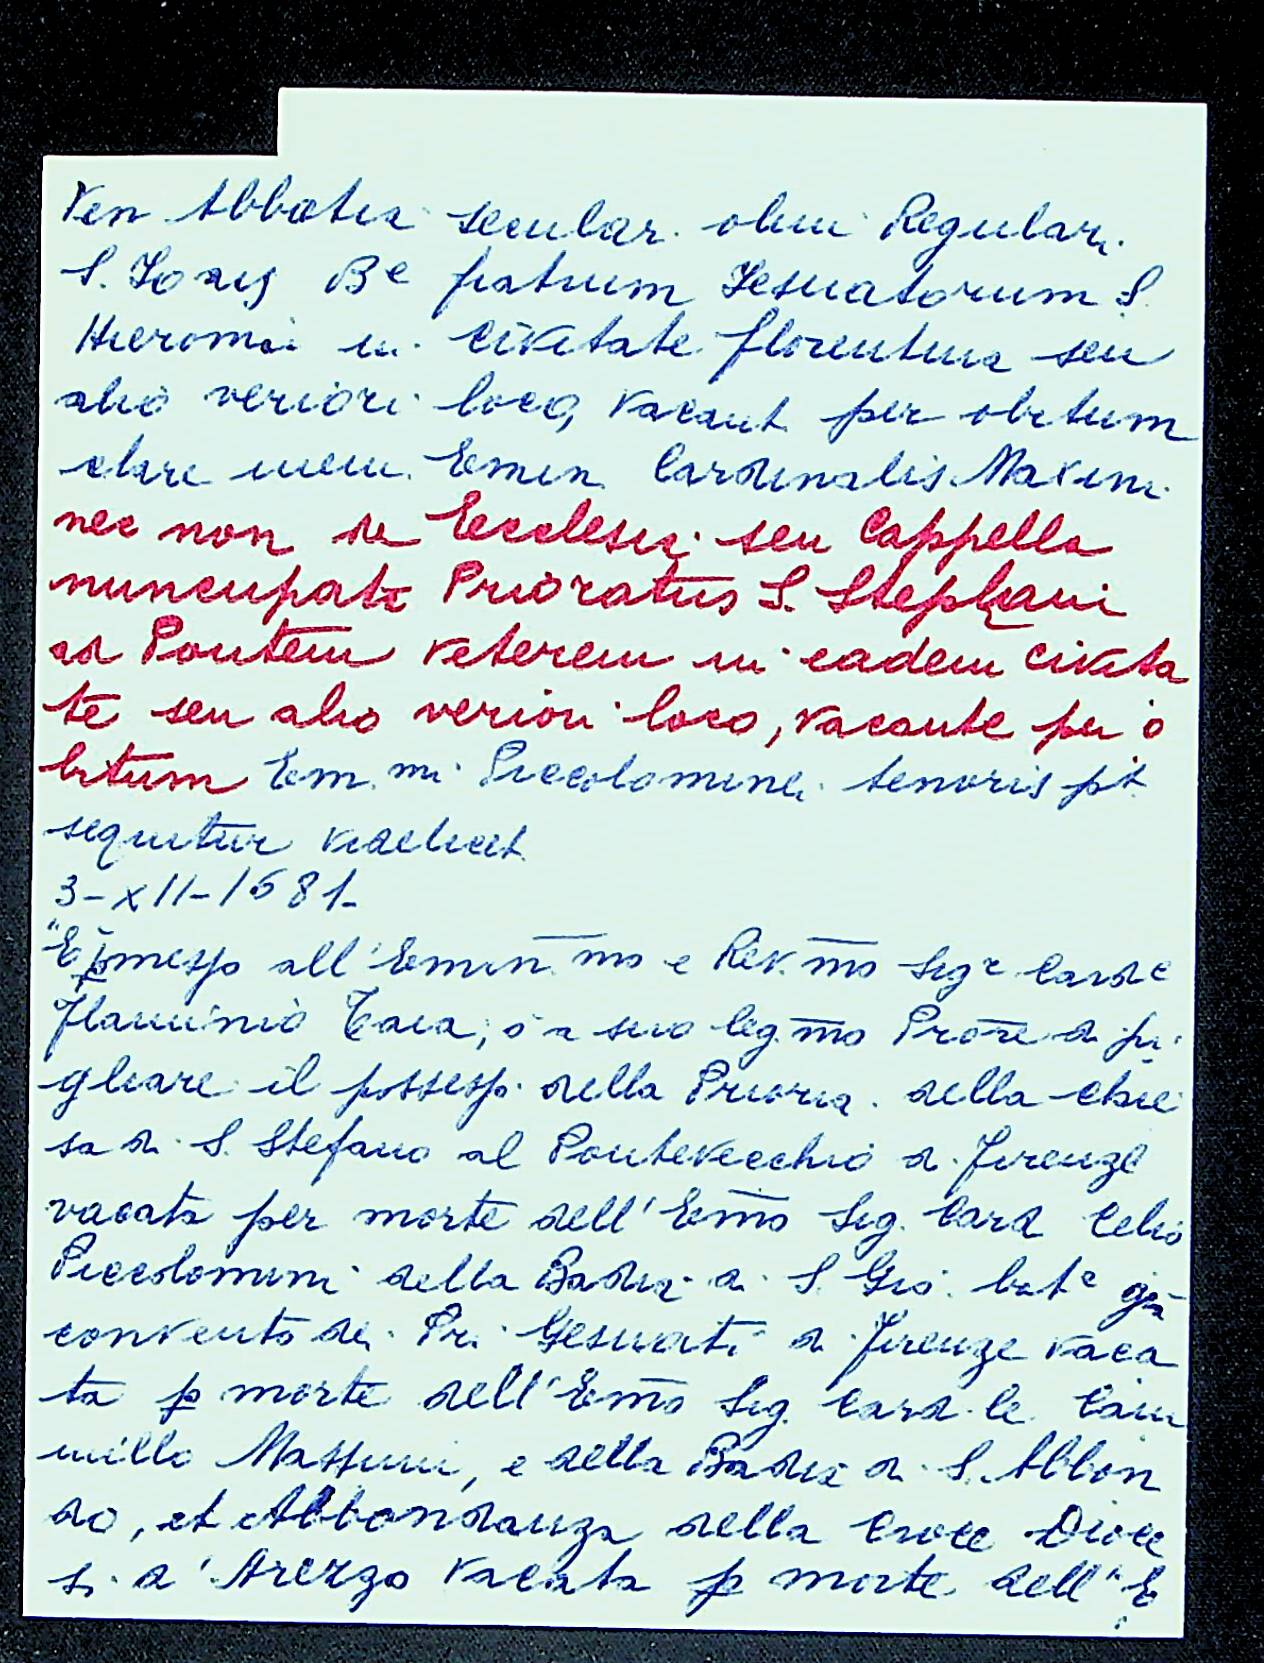 Ven Abbatia secular. olim Regular.
S. Joais Be fratrum Jesuatorum S.
Hieromi in civitate florentina seu
alio veriori loco, vacant per obitum
clare mem. Emin. Cardinalis Maximi
nec non de Ecclesia seu Cappella
nuncupata Prioratus S. Stephani
ad Pontem veterem in eadem civita
te seu alio veriori loco, vacante per o
bitum Em. mi Piccolominei tenoris pt
sequitur videlicet
3-XII-1681-
"E pmesso all'Eminmo e Rev.mo Sigr Carde
Flaminio Taia, o a suo leg.mo Prore di pi
gliare il possesso della Prioria della chie
sa di S. Stefano al Pontevecchio di Firenze
vacata per morte dell'Emo Sig. Card Celio
Piccolomini della Badia di S. Gio. bate già
convento dei Pri Gesuati di Firenze vaca
ta p morte dell'Emo Sig. Card.le Cam
millo Massimi, e della Badia di S. Abbon
do, et Abbondanza della Croce Dioce
si d'Arezzo vacata p morte dell'E